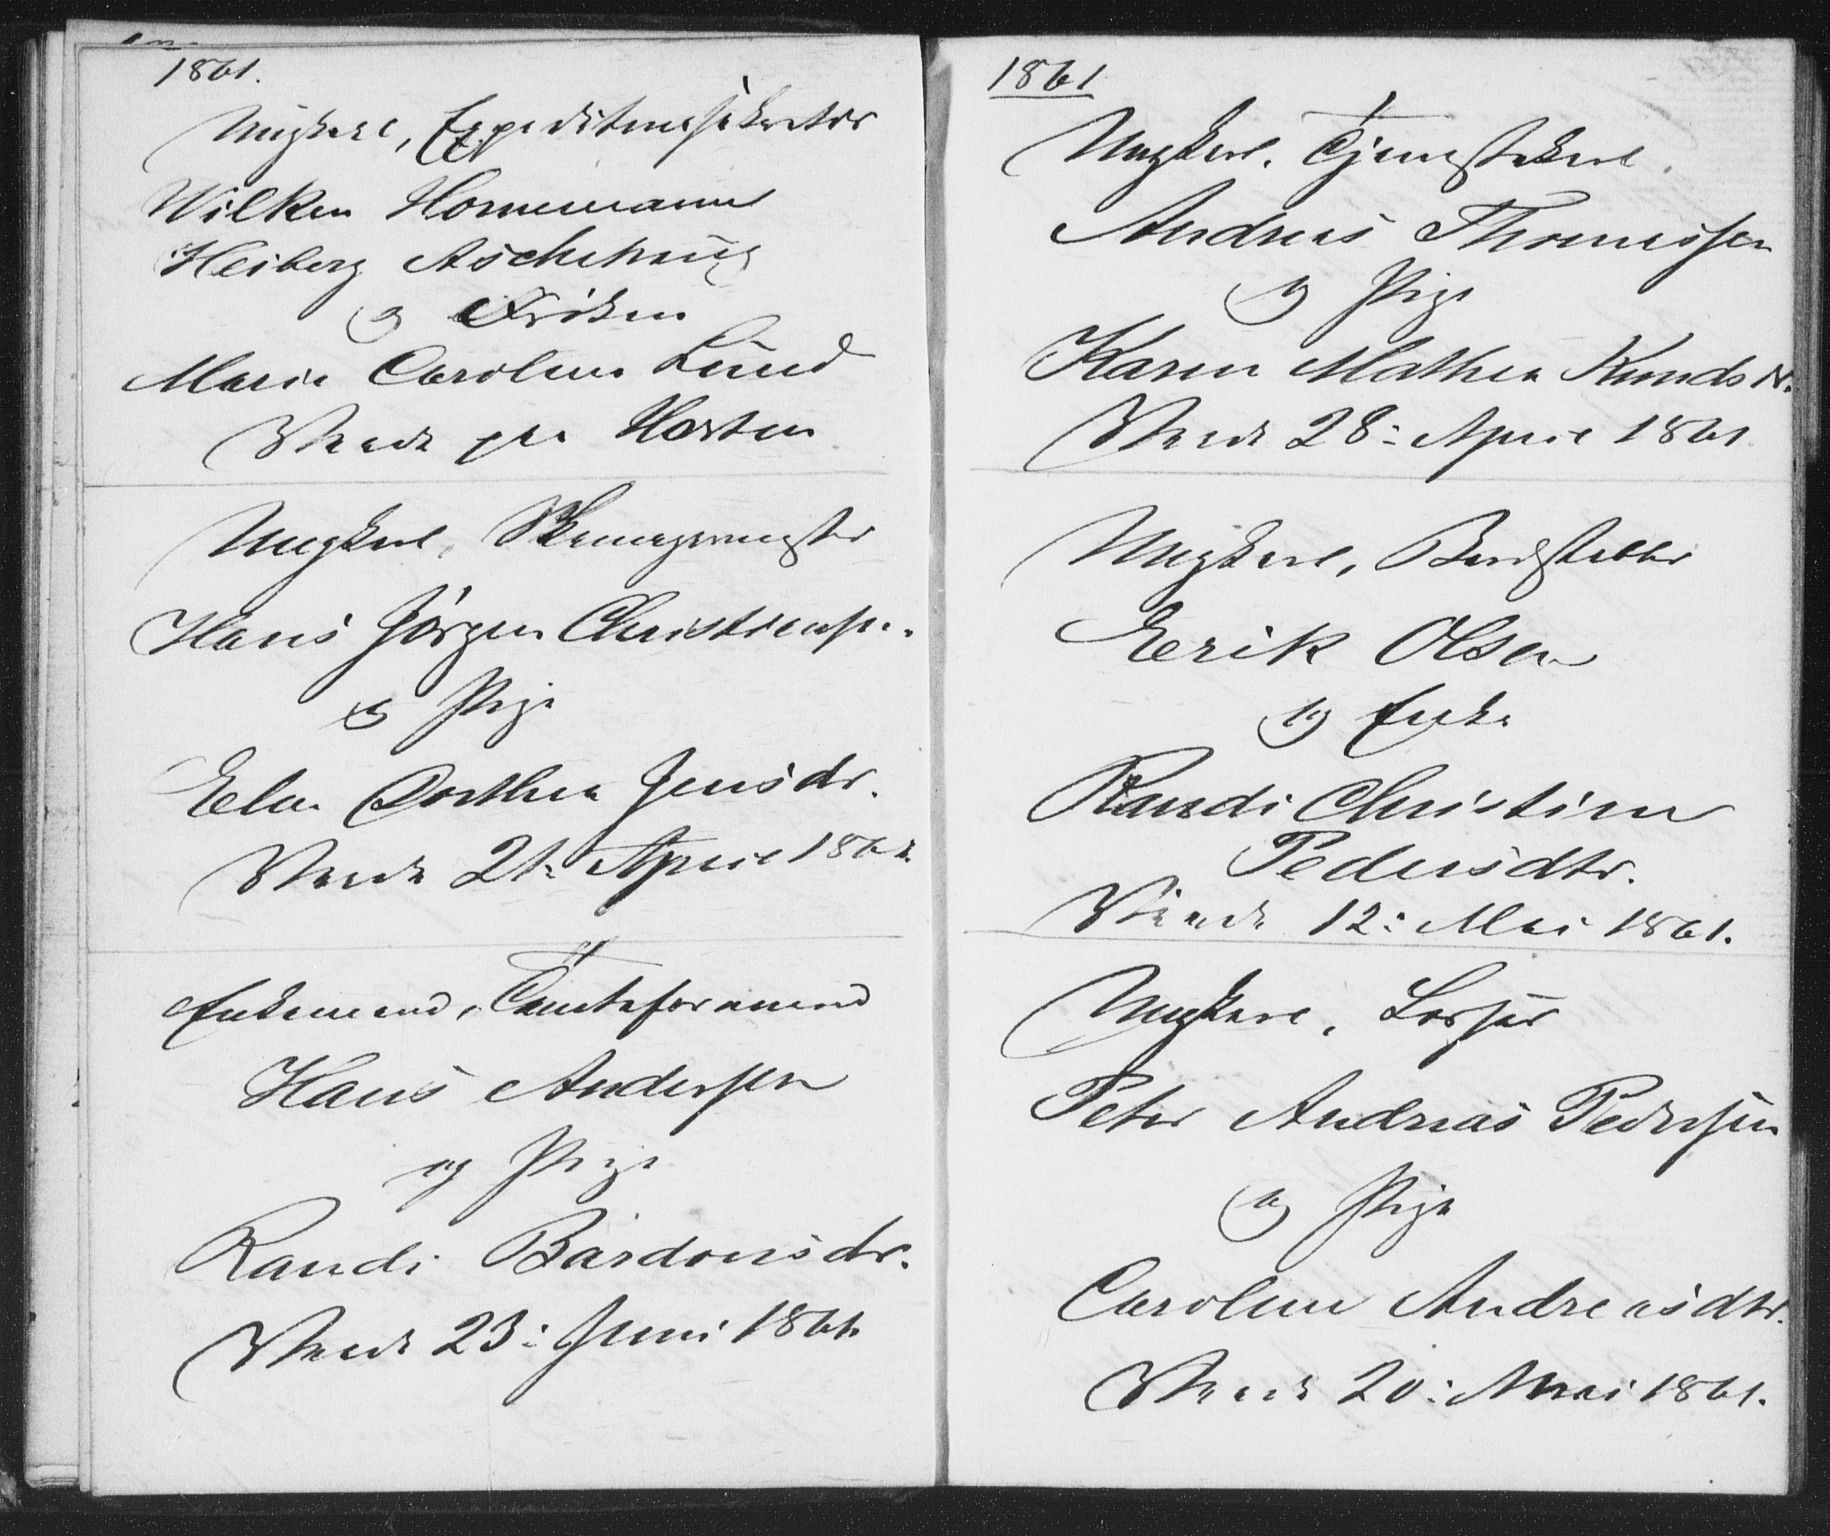 1861.
Ungkarl, Expeditionssekretær
Wilken Hornemann
Heiberg Aschehoug
og Frøken
Marie Caroline Lund
Viede paa Horten
Ungkarl,
Hans Jørgen Christensen
og Pige
Elen Dorthea Jensdr.
Viede 21: April 1861.
Enkemand, Tomteformand
Hans Andersen
og Pige
Randi Bardonsdr.
Viede 23: Juni 1861.
1861
Ungkarl. Tjenestekarl
Andreas Thomessen
og Pige
Karen Mathea Knudsdr.
Viede 28: April 1861
Ungkarl,
Erik Olsen
og Enke
Randi Christine
Pedersdtr.
Viede 12: Mai 1861.
Ungkarl,
Peter Andreas Pedersen
og Pige
Caroline Andreasdtr.
Viede 20: Mai 1861.